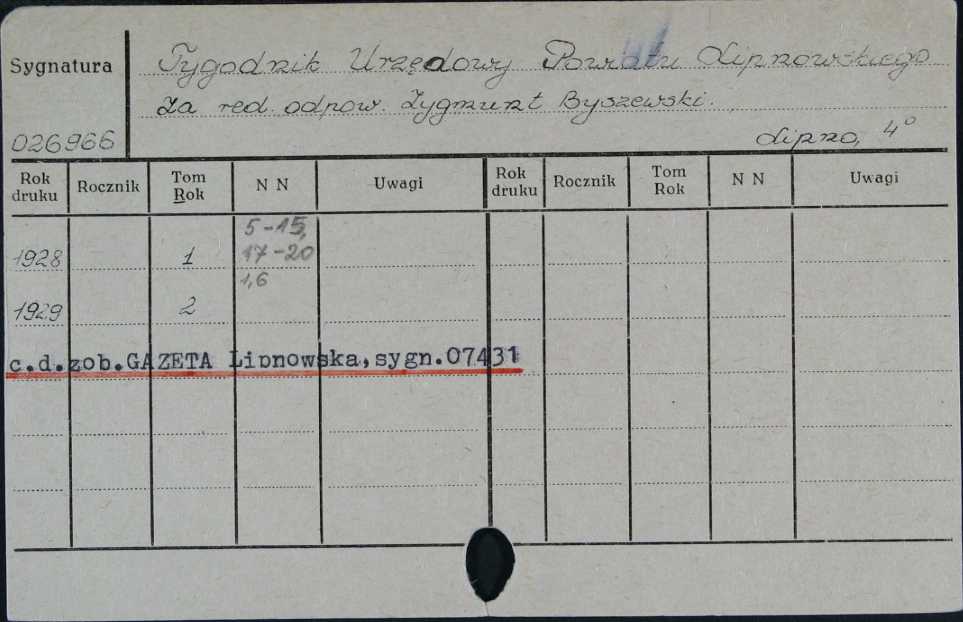 Sygnatura
026966
Tygodnik Urzędowy Powiatu Lipnowskiego
Za red. odpow. Zygmunt Byszewski.
Lipno, 4°
Rok druku Rocznik Tom Rok N N Uwagi Rok druku Rocznik Tom Rok N N Uwagi
5-15,
1928 1 17-20
1,6
1929 2
c.d.zob.GAZETA Lipnowska,sygn.07431